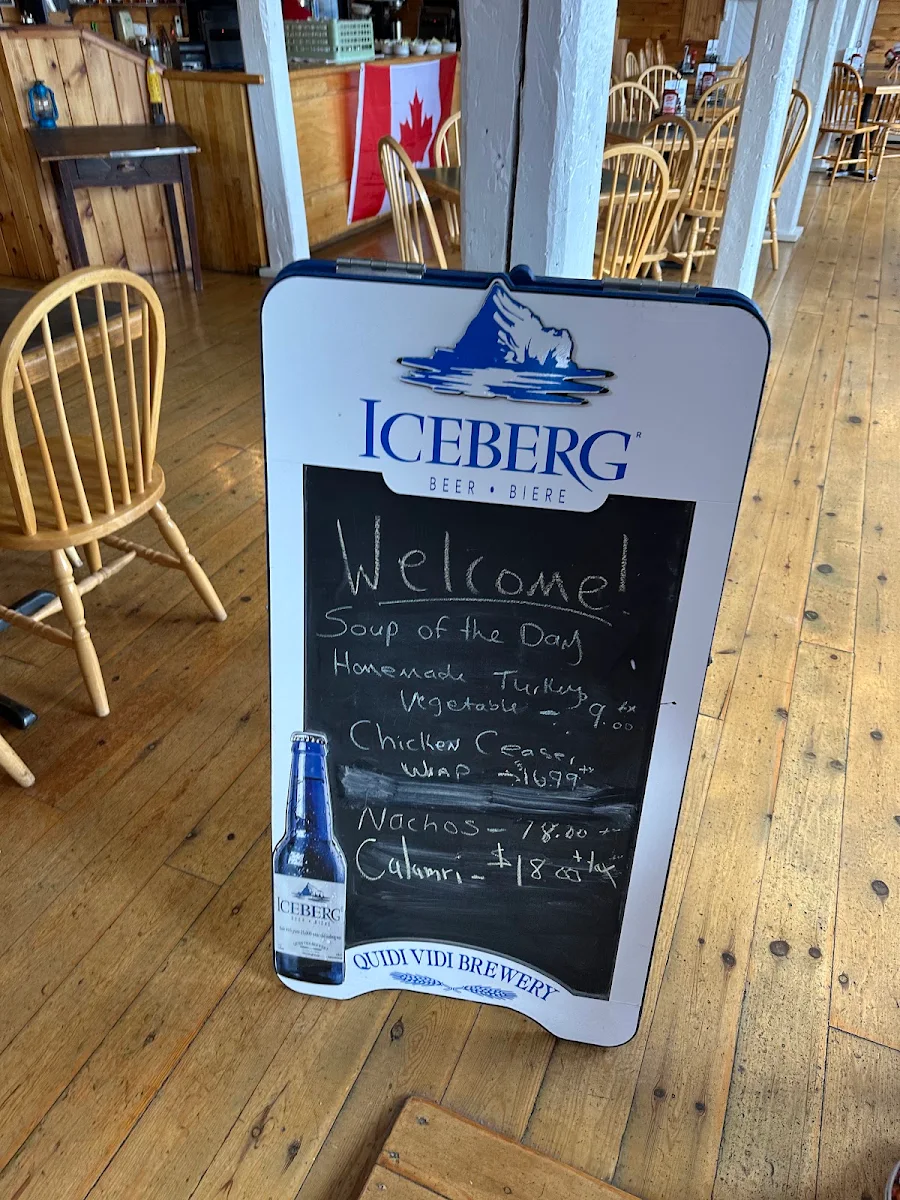 ICEBERG
BEER • BIERE
Welcome!
Soup of the Day
Homemade Turkey
Vegetable - 9.00 tx
Chicken Ceaser
Wrap - $16.99 tx
Nachos - 18.00 tx
Calamri - $18.00 + tax
ICEBERG
BEER • BIERE
QUIDI VIDI BREWERY